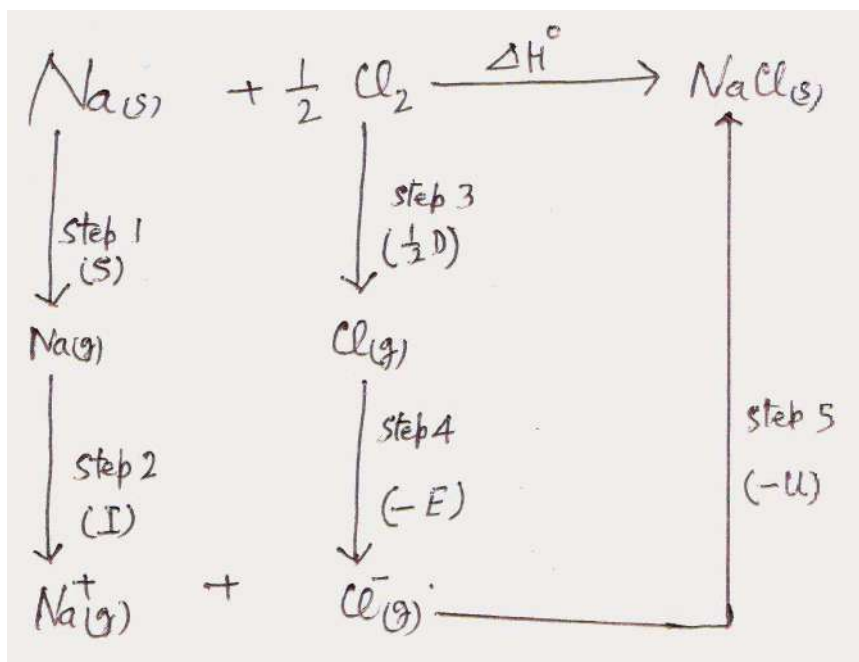 ΔH°
Na(s) + 1/2 Cl2 → NaCl(s)
step 1
(S)
step 3
(1/2 D)
Na(g)
Cl(g)
step 2
(I)
step 4
(-E)
step 5
(-U)
Na+(g) + Cl-(g)